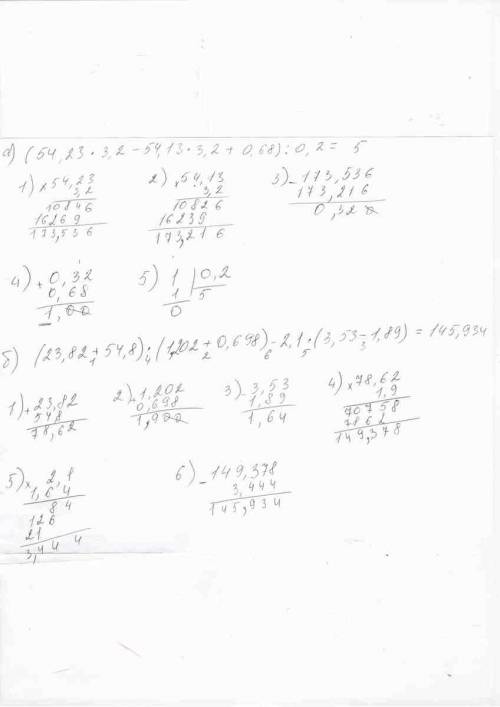 а) (54,23 * 3,2 - 54,13 * 3,2 + 0,68) : 0,2 = 5
1) × 54,23
3,2
10846
16269
173,536
2) × 54,13
3,2
10826
16239
173,216
3) - 173,536
173,216
0,320
4) + 0,32
0,68
1,00
5) 1 | 0,2
1 5
0
б) (23,82 + 54,8) * (1,202 + 0,698) - 2,1 * (3,53 - 1,89) = 145,934
1 4 2 6 5 3
1) + 23,82
54,8
78,62
2) + 1,202
0,698
1,900
3) - 3,53
1,89
1,64
4) × 78,62
1,9
70758
7862
149,378
5) × 2,1
1,64
84
126
21
3,444
6) - 149,378
3,444
145,934